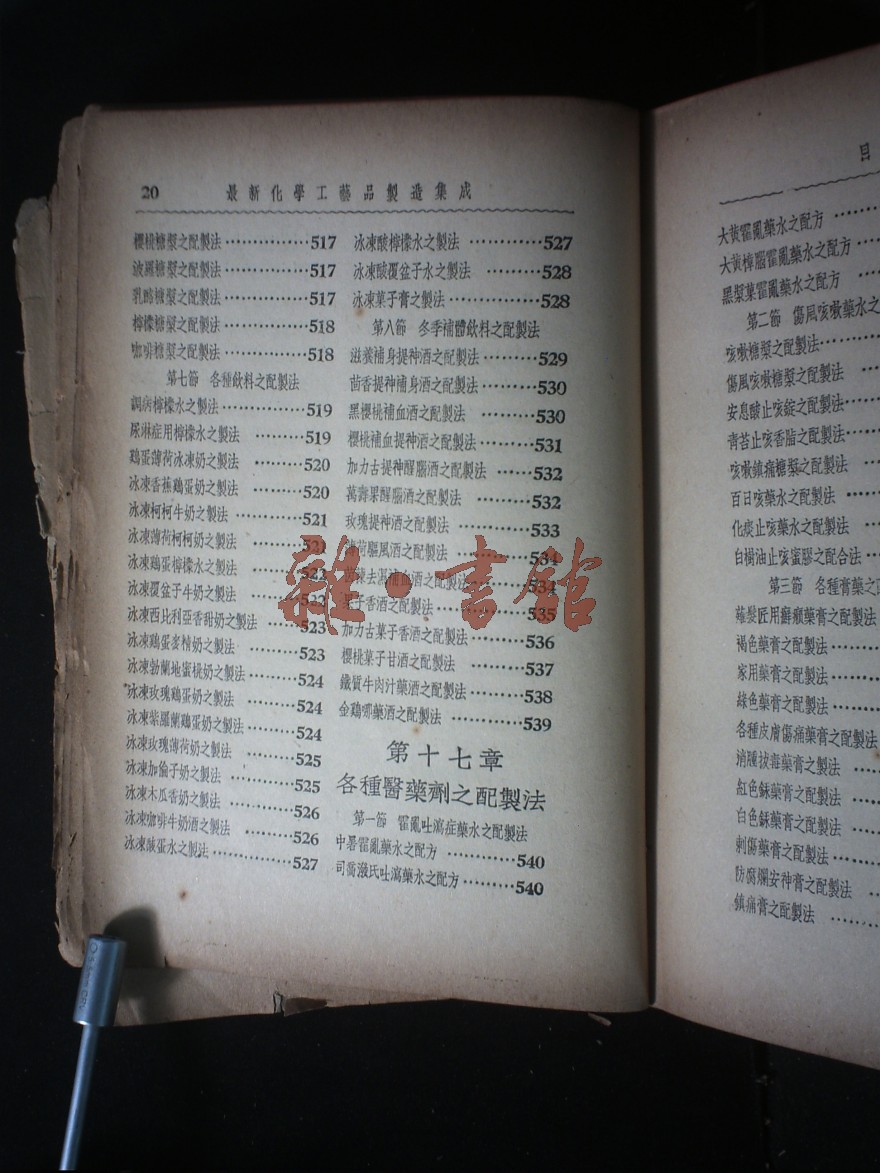 20 最新化學工藝品製造集成
櫻桃糖漿之配製法……………517
波羅糖漿之配製法……………517
乳酪糖漿之配製法……………517
檸檬糖漿之配製法……………518
咖啡糖漿之配製法……………518
第七節 各種飲料之配製法
調病檸檬水之製法……………519
尿淋症用檸檬水之製法………519
鷄蛋薄荷冰凍奶之製法………520
冰凍香蕉鷄蛋奶之製法………520
冰凍柯柯牛奶之製法…………521
冰凍薄荷柯柯奶之製法………521
冰凍鷄蛋檸檬水之製法………521
冰凍覆盆子牛奶之製法………523
冰凍西比利亞香甜奶之製法…523
冰凍鷄蛋麥精奶之製法………523
冰凍勃蘭地蜜桃奶之製法……524
冰凍玫瑰鷄蛋奶之製法………524
冰凍紫羅蘭鷄蛋奶之製法……524
冰凍玫瑰薄荷奶之製法………525
冰凍加倫子奶之製法…………525
冰凍木瓜香奶之製法…………526
冰凍咖啡牛奶酒之製法………526
冰凍鹹蛋水之製法……………527
冰凍酸檸檬水之製法…………527
冰凍酸覆盆子水之製法………528
冰凍菓子膏之製法……………528
第八節 冬季補體飲料之配製法
滋養補身提神酒之配製法……529
茴香提神補身酒之配製法……530
黑櫻桃補血酒之配製法………530
櫻桃補血提神酒之配製法……531
加力古提神醒腦酒之配製法…532
萬壽果醒腦酒之配製法………532
玫瑰提神酒之配製法…………533
薄荷驅風酒之配製法…………534
去濕補血酒之配製法…………534
子香酒之配製法………………535
加力古菓子香酒之配製法……536
櫻桃菓子甘酒之配製法………537
鐵質牛肉汁藥酒之配製法……538
金鷄哪藥酒之配製法…………539
第十七章
各種醫藥劑之配製法
第一節 霍亂吐瀉症藥水之配製法
中暑霍亂藥水之配方…………540
司喬潑氏吐瀉藥水之配方……540
雜·書館
目
大黃霍亂藥水之配方………
大黃樟腦霍亂藥水之配方…
黑漿菓霍亂藥水之配方
第二節 傷風咳嗽藥水之
咳嗽糖漿之配製法…………
傷風咳嗽糖漿之配製法……
安息酸止咳錠之配製法……
青苔止咳香脂之配製法……
咳嗽鎮痛糖漿之配製法……
百日咳藥水之配製法………
化痰止咳藥水之配製法……
白樹油止咳蜜膠之配合法
第三節 各種膏藥之
薙髮匠用癬癩藥膏之配製法
褐色藥膏之配製法…………
家用藥膏之配製法…………
綠色藥膏之配製法…………
各種皮膚傷痛藥膏之配製法
消腫拔毒藥膏之製法………
紅色穌藥膏之配製法………
白色穌藥膏之配製法………
刺傷藥膏之配製法…………
防腐爛安神膏之配製法……
鎮痛膏之配製法……………